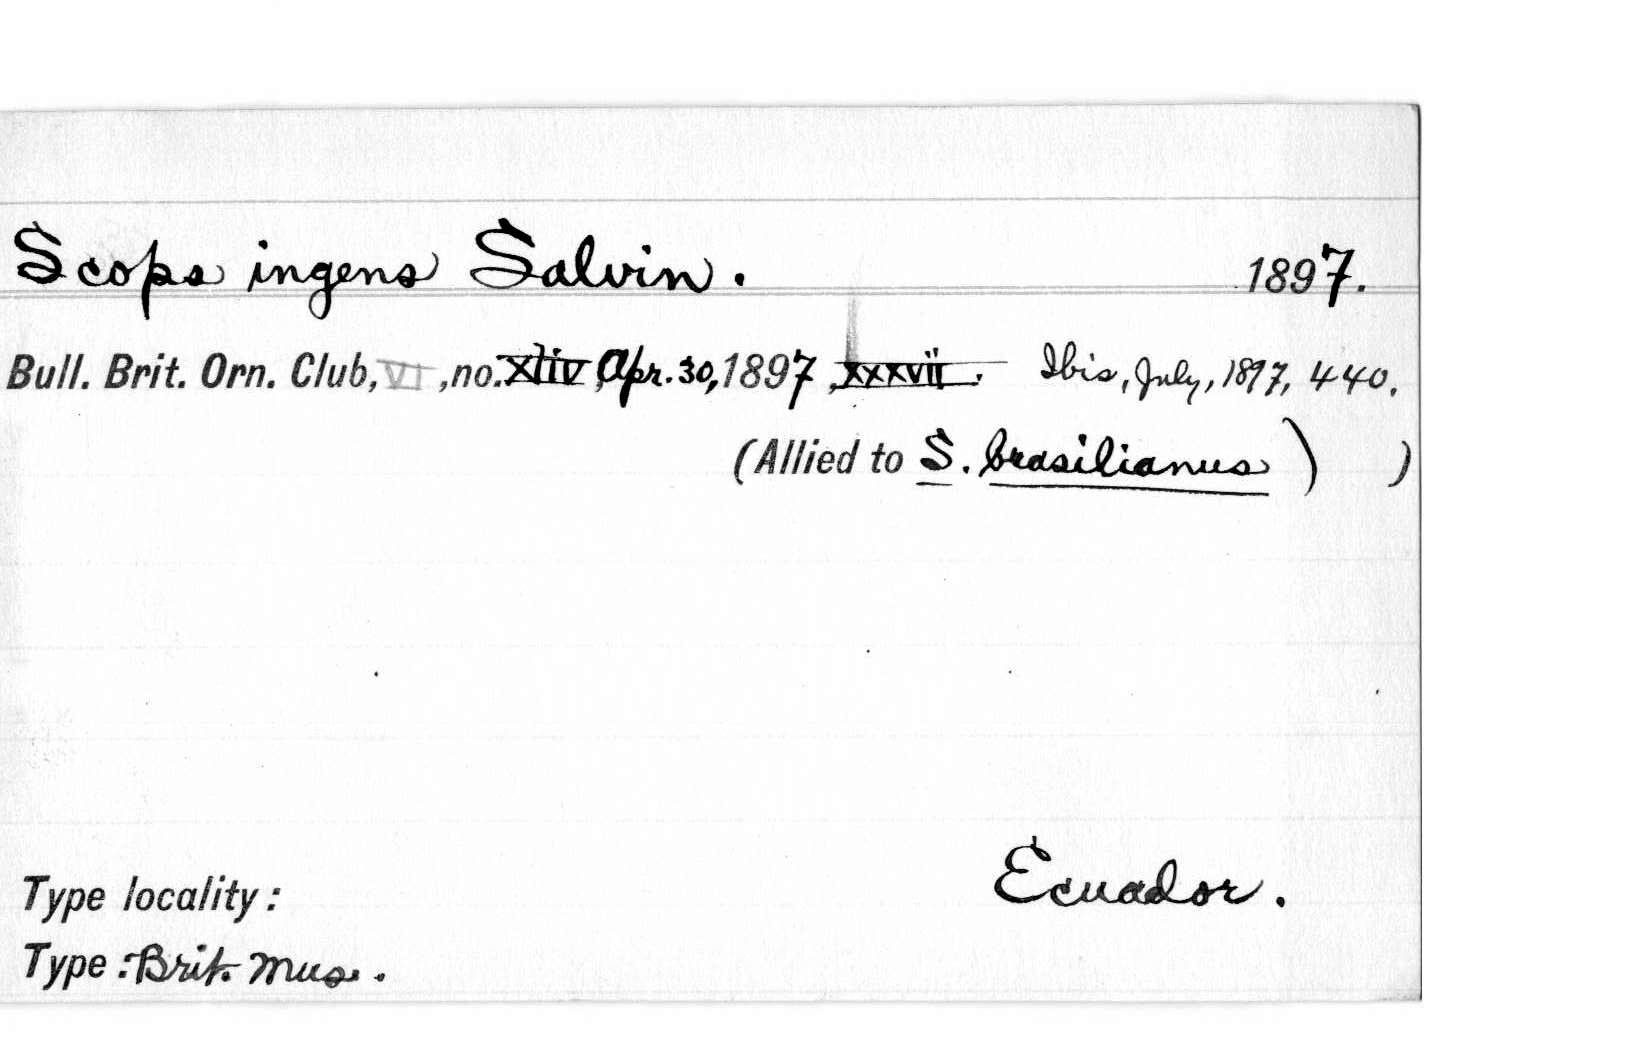 Scops ingens Salvin. 1897.
Bull. Brit. Orn. Club, VI, no. xliv, Apr. 30, 1897, xxxvii. Ibis, July, 1897, 440.
(Allied to S. brasilianus) )
Type locality: Ecuador.
Type: Brit. Mus.